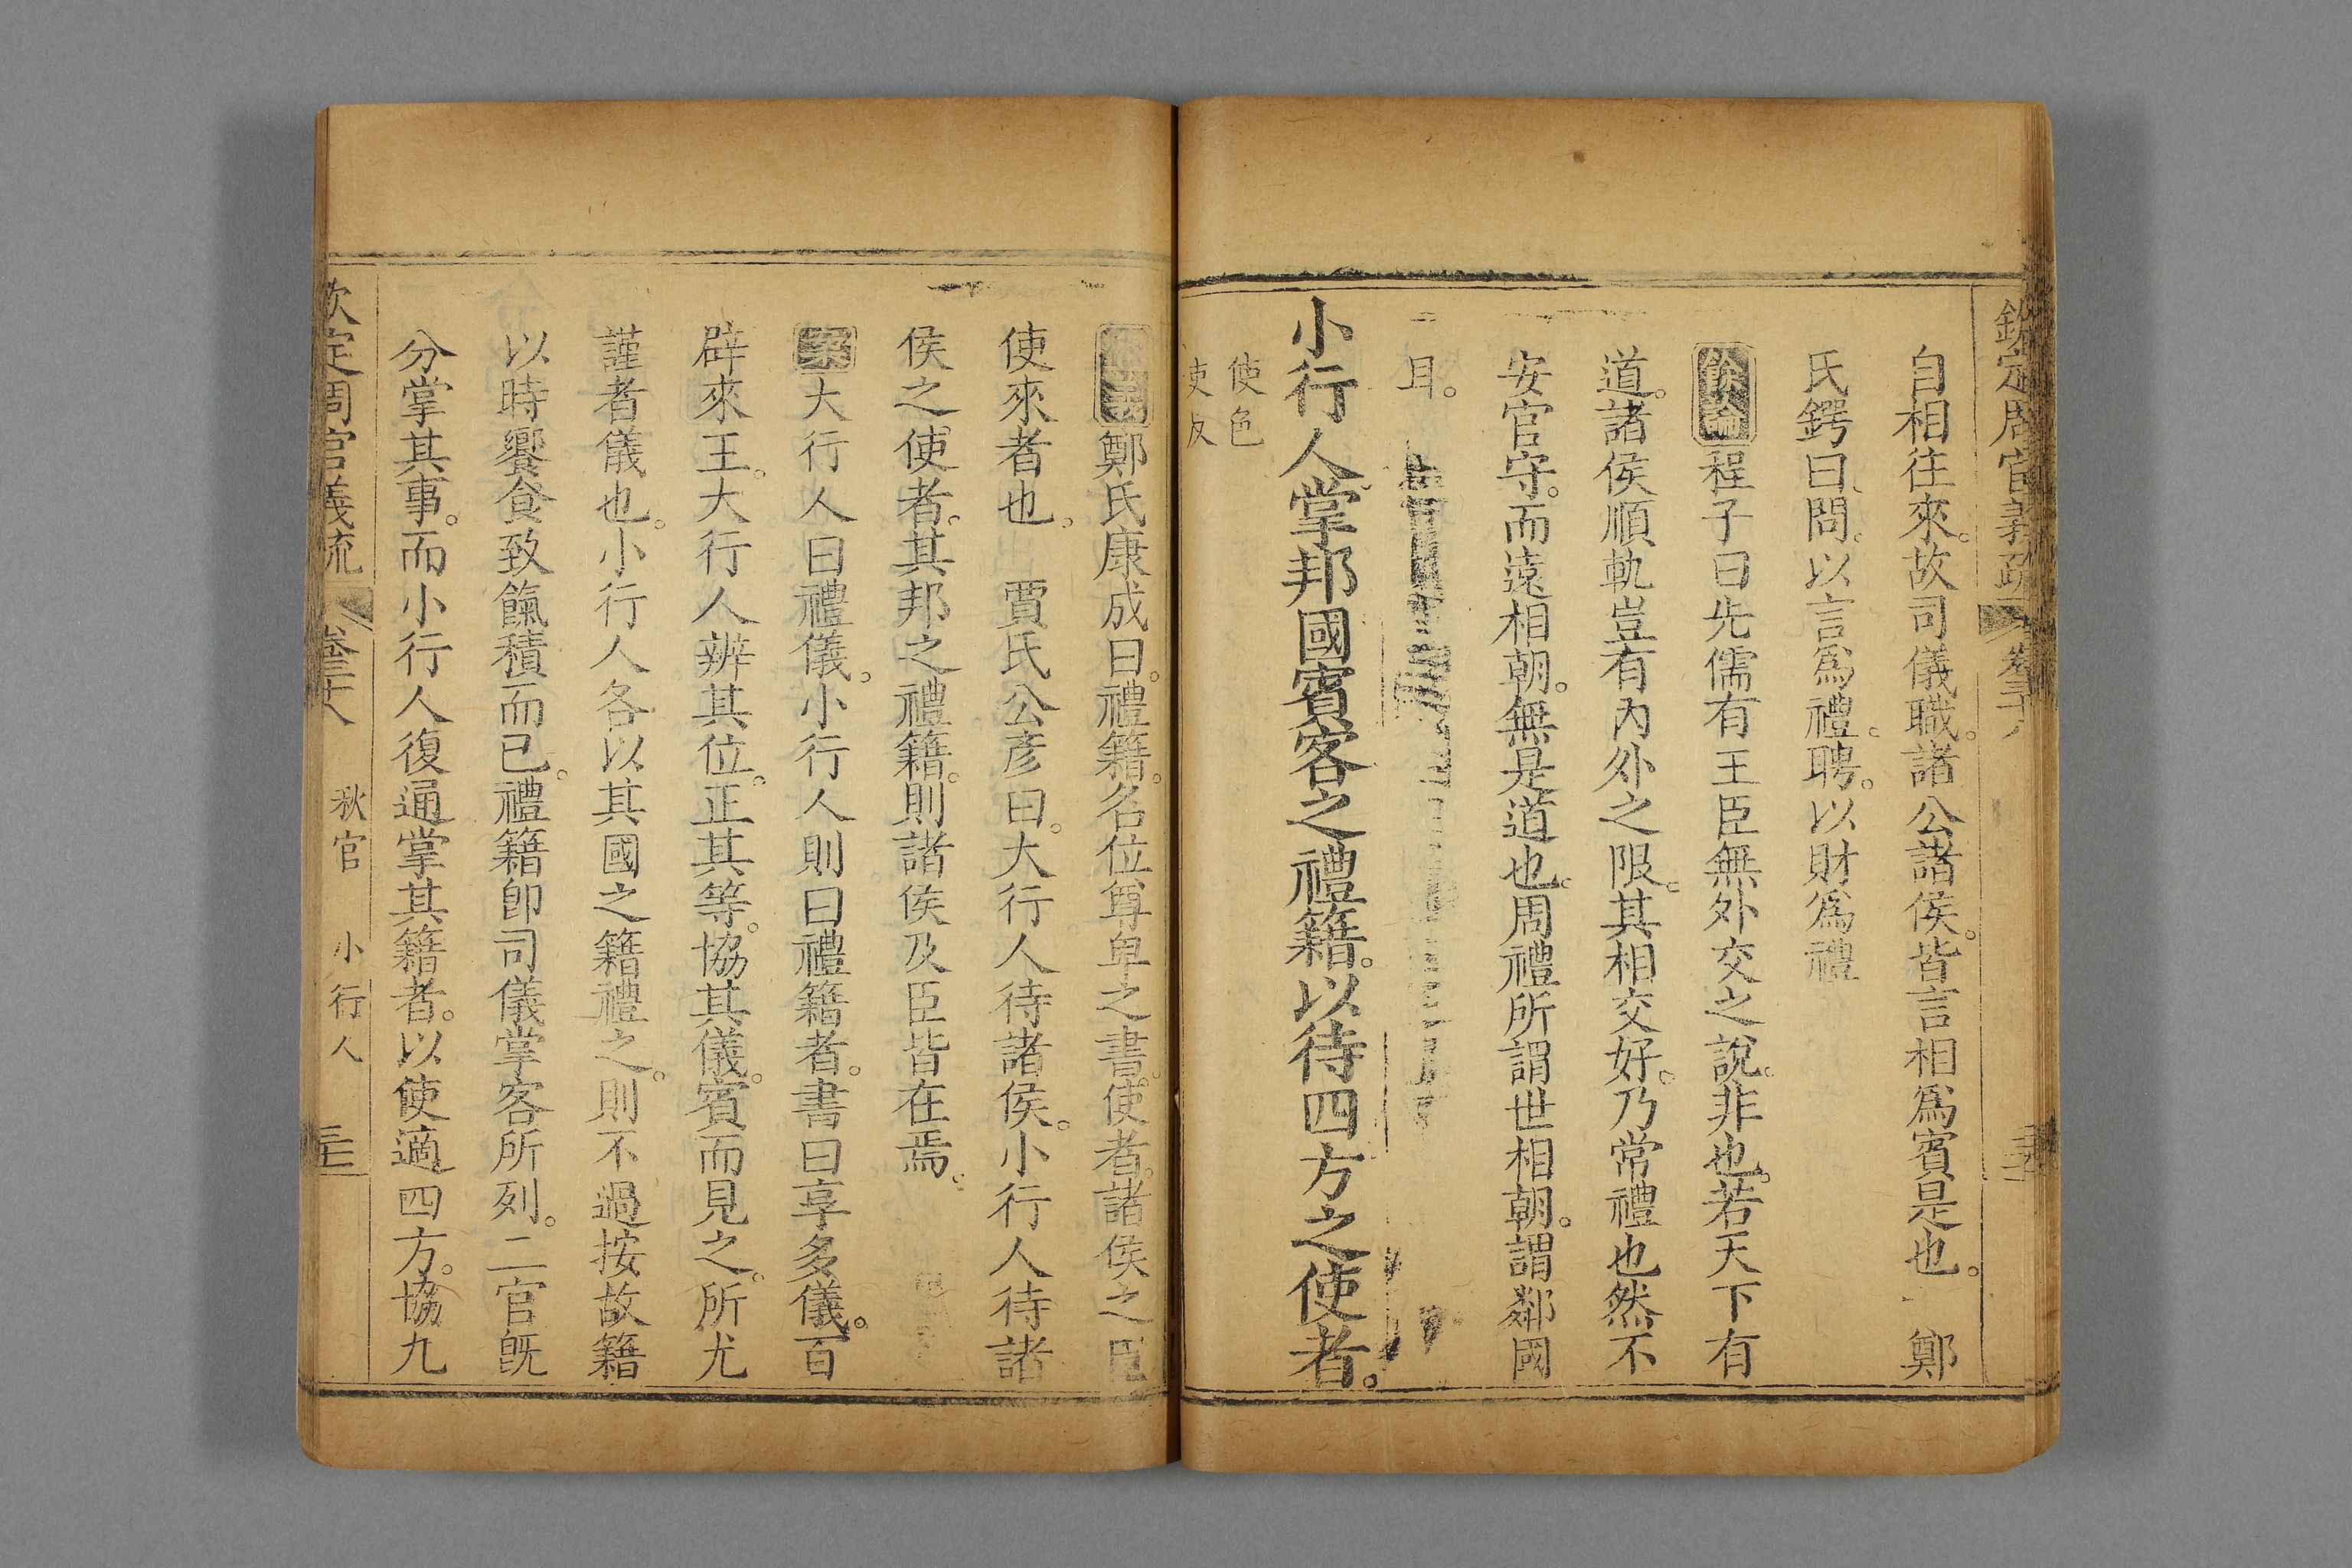 欽定周官義疏 卷三十八
自相往來。故司儀職。諸公諸侯。皆言相爲賓是也。 鄭
氏鍔曰。問。以言爲禮。聘。以財爲禮
餘論程子曰先儒有王臣無外交之說。非也。若天下有
道。諸侯順軌豈有內外之限。其相交好。乃常禮也然不
安官守。而遠相朝。無是道也。周禮所謂世相朝。謂鄰國
耳。
小行人。掌邦國賓客之禮籍。以待四方之使者。
使色
使反
鄭氏康成曰。禮籍。名位尊卑之書。使者。諸侯之臣
使來者也。 賈氏公彥曰。大行人待諸侯。小行人待諸
侯之使者。其邦之禮籍。則諸侯及臣皆在焉。
案大行人曰禮儀。小行人則曰禮籍者。書曰享多儀。百
辟來王。大行人辨其位。正其等。協其儀。賓而見之。所尤
謹者儀也。小行人各以其國之籍禮之。則不過按故籍
以時饗食致餼積而已。禮籍卽司儀掌客所列。二官既
分掌其事。而小行人復通掌其籍者。以使適四方。協九
欽定周官義疏 卷三十八 秋官 小行人 三七